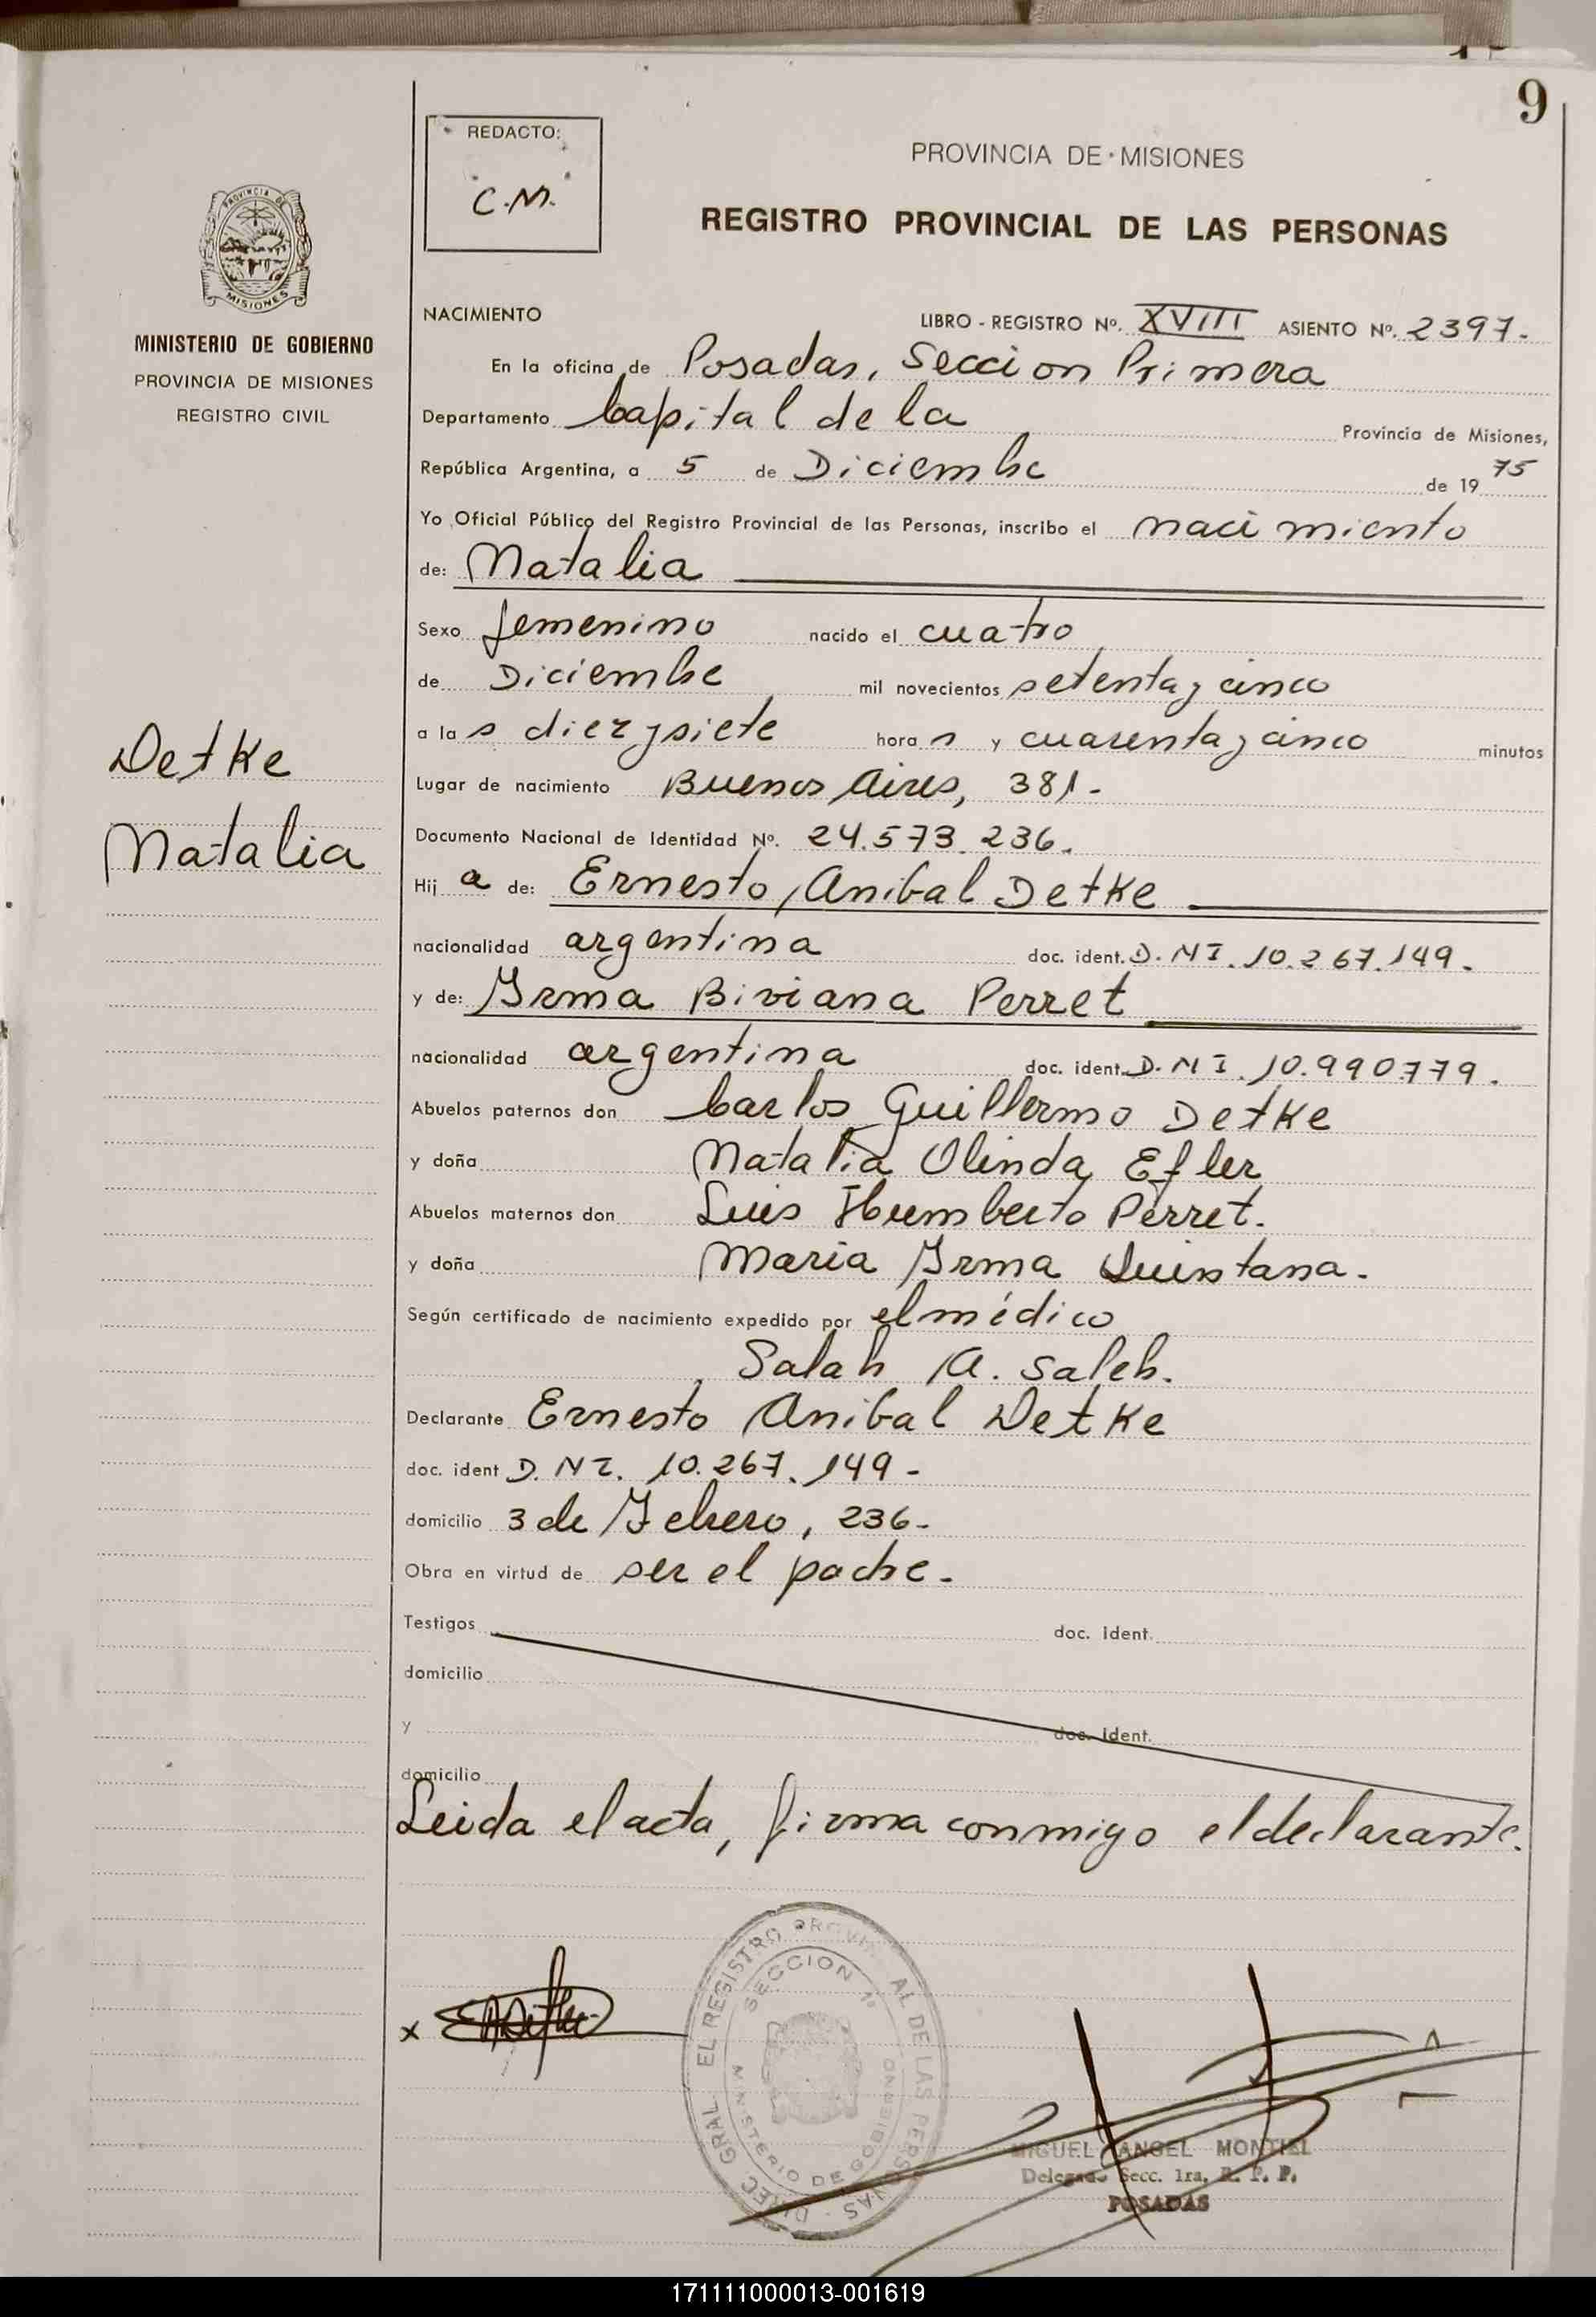 9
REDACTO:
C.M.
PROVINCIA DE MISIONES
REGISTRO PROVINCIAL DE LAS PERSONAS
PROVINCIA DE
MISIONES
MINISTERIO DE GOBIERNO
PROVINCIA DE MISIONES
REGISTRO CIVIL
Detke
Natalia
NACIMIENTO LIBRO - REGISTRO Nº. XVIII ASIENTO Nº. 2397.-
En la oficina de Posadas, Seccion Primera
Departamento Capital de la Provincia de Misiones,
República Argentina, a 5 de Diciembre de 19 75
Yo Oficial Público del Registro Provincial de las Personas, inscribo el nacimiento
de: Natalia
Sexo femenino nacido el cuatro
de Diciembre mil novecientos setenta y cinco
a la s diez y siete hora s y cuarenta y cinco minutos
Lugar de nacimiento Buenos Aires, 381.-
Documento Nacional de Identidad Nº. 24.573.236.
Hij a de: Ernesto Anibal Detke
nacionalidad argentina doc. ident. D.N.I. 10.267.149.-
y de: Irma Biviana Perret
nacionalidad argentina doc. ident. D.N.I. 10.990.779.
Abuelos paternos don Carlos Guillermo Detke
y doña Natalia Olinda Efler
Abuelos maternos don Luis Humberto Perret.
y doña Maria Irma Quintana.-
Según certificado de nacimiento expedido por el médico
Salah A. Saleh.
Declarante Ernesto Anibal Detke
doc. ident D.N.I. 10.267.149.-
domicilio 3 de Febrero, 236.-
Obra en virtud de ser el padre.-
Testigos doc. ident.
domicilio
y doc. ident.
domicilio
Leida el acta, firma conmigo el declarante.
DIREC. GRAL. EL REGISTRO PROVINCIAL DE LAS PERSONAS
SECCION 1ª
MINISTERIO DE GOBIERNO
x
MIGUEL ANGEL MONTIEL
Delegado Secc. 1ra. R. P. P.
POSADAS
171111000013-001619